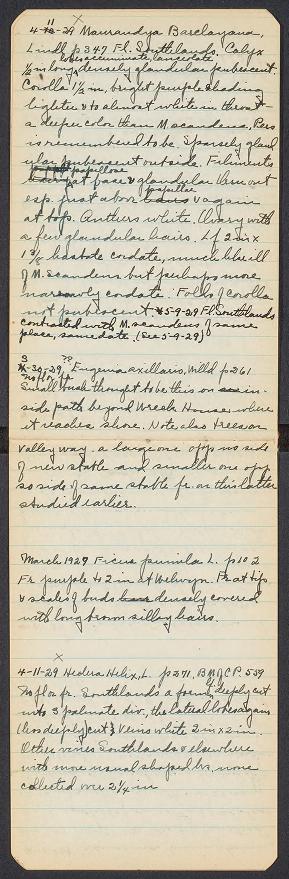 4-11-29 Maurandya Barclayana,
Lindl p 347 Fl. Southlands. Calyx
lobes acuminate, lanceolate
1/2 in long, densely glandular pubescent.
Corolla 1 1/2 in, bright purple shading
lighter & to almost white in throat -
a deeper color than M scandens, Pers
is remembered to be. Sparsely gland
ular pubescent outside. Filiments
papillose
at base & glandular thruout
papillae
esp. just above & again
at top. Anthers white. Ovary with
a few glandular hairs. Lf 2 in x
1 3/8 hastate cordate, much like ill
of M. scandens but perhaps more
narrowly cordate. Folds of corolla
not pubescent 5-9-29 Fl. Southlands
contrasted with M. scandens of same
place, same date. (See 5-9-29)
3-30-29, ?? Eugenia axillaris, Willd p 261
No fl or fr.
Small bush thought to be this on in-
side path beyond Wreck House where
it reaches shore. Note also trees on
valley way. a large one opp no side
of new stable and smaller one opp
so side of same stable fr. on this latter
studied earlier.
March 1929 Ficus pumila L. p 102
Fr purple to 2 in at Welwyn. Fr at tip
& scales of buds densely covered
with long brown silky hairs.
4-11-29 Hedera Helix, L. p 271, B M of C P. 559
No fl or fr. Southlands a form deeply cut
into 3 palmate div., the lateral lobes again
(less deeply) cut & veins white 2 in x 2 in.
Other vines Southlands & elsewhere
with more usual shaped lvs. none
collected over 2 1/4 in